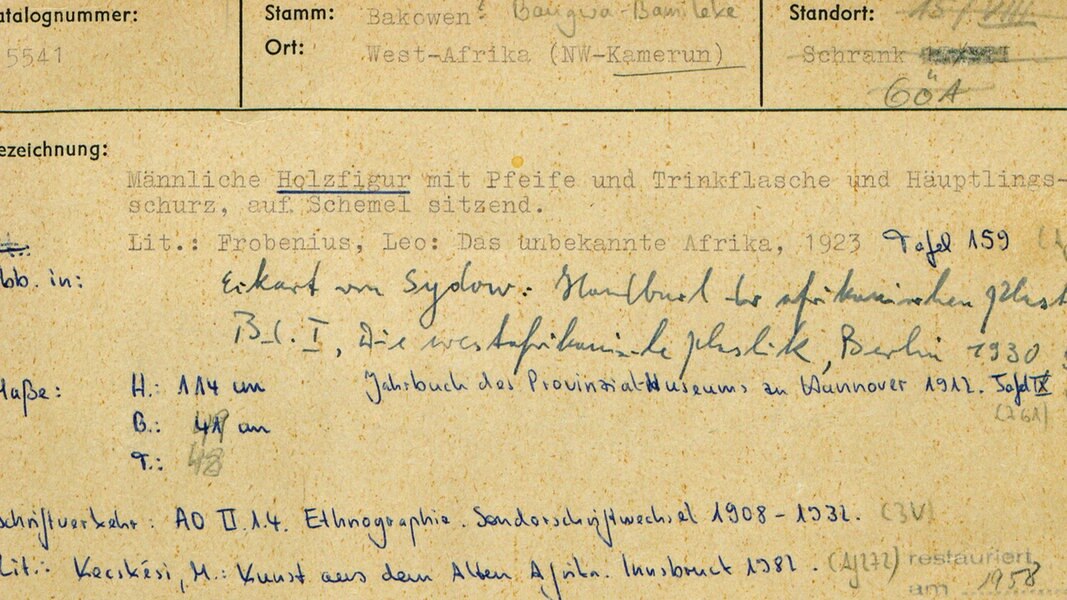 atalognummer:
5541
Stamm: Bakowen? Bangwa-Bamileke
Ort: West-Afrika (NW-Kamerun)
Standort: 15/VIII
Schrank
GÖA
ezeichnung:
Männliche Holzfigur mit Pfeife und Trinkflasche und Häuptlings-
schurz, auf Schemel sitzend.
Lit.: Frobenius, Leo: Das unbekannte Afrika, 1923 Tafel 159
bb. in: Eckart von Sydow: Handbuch der afrikanischen Plast
Bd. I, Die westafrikanische Plastik, Berlin 1930
Jahrbuch des Provinzial-Museums zu Hannover 1912. Tafel IX
(261)
Maße: H.: 114 cm
B.: 41 cm
T.: 48
Schriftverkehr: AO II.1.4. Ethnographie. Sonderschriftwechsel 1908-1932. (3V)
Lit.: Kecskési, M.: Kunst aus dem Alten Afrika. Innsbruck 1982. (Aj272)
restauriert
am 1958